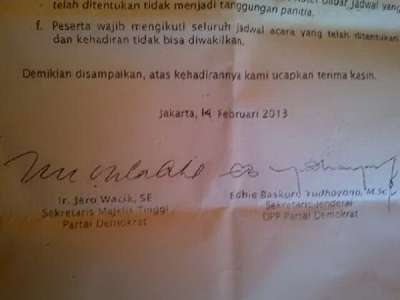 telah ditentukan tidak menjadi tanggungan panitia.
f. Peserta wajib mengikuti seluruh jadwal acara yang telah ditentukan
dan kehadiran tidak bisa diwakilkan.
Demikian disampaikan, atas kehadirannya kami ucapkan terima kasih.
Jakarta, 14 Februari 2013
Ir. Jero Wacik, SE
Sekretaris Majelis Tinggi
Partai Demokrat
Edhie Baskoro Yudhoyono, M.Sc
Sekretaris Jenderal
DPP Partai Demokrat